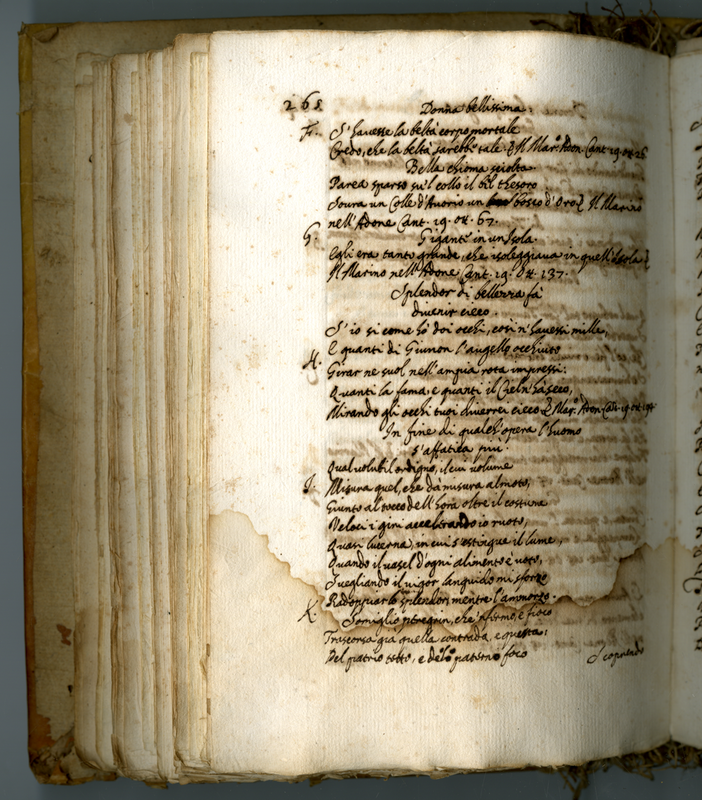 268
Donna bellissima.
F. S'havesse la beltà corpo mortale
Credo, che la beltà sarebbe tale. Il Mar.º Adon. Cant. 19. ott. 26
Bella chioma sciolta.
Parea sparso su'l collo il bel thesoro
Soura un Colle d'Auorio un bosco d'Oro. Il Marino
nell'Adone Cant. 19. ott. 67.
G. Giganti in un Isola.
Egli era tanto grande, che isoleggiaua in quell'Isola
Il Marino nell'Adone Cant. 19. Ott. 137.
Splendor di bellezza fà
divenir cieco.
S'io si come hò doi occhi, così n'havessi mille,
E quanti di Giunon l'augello occhiuto
H. Girar ne suol nell'ampia rota impressi:
Quanti la fama, e quanti il Ciel n'hà seco,
Mirando gli occhi tuoi diverrei cieco Mar.º Adon. Cant. 19 ott.
In fine di qualch'opera l'huomo
s'affatica più.
Qual volubil ordigno, il cui volume
I. Misura quel, che dà misura al moto,
Giunto al tocco dell'hora oltre il costume
Veloci i giri accelerando io ruoto,
Quasi lucerna, in cui s'estingue il lume,
Quando il vasel d'ogni alimento è voto,
Svegliando il vigor languido mi sforzo
Radoppiar lo splendor, mentre l'ammorzo.
K. Somiglio peregrin, che 'nfermo, e fioco
Trascorsa già quella contrada, e questa;
Del patrio tetto, e del paterno foco
Scoprendo